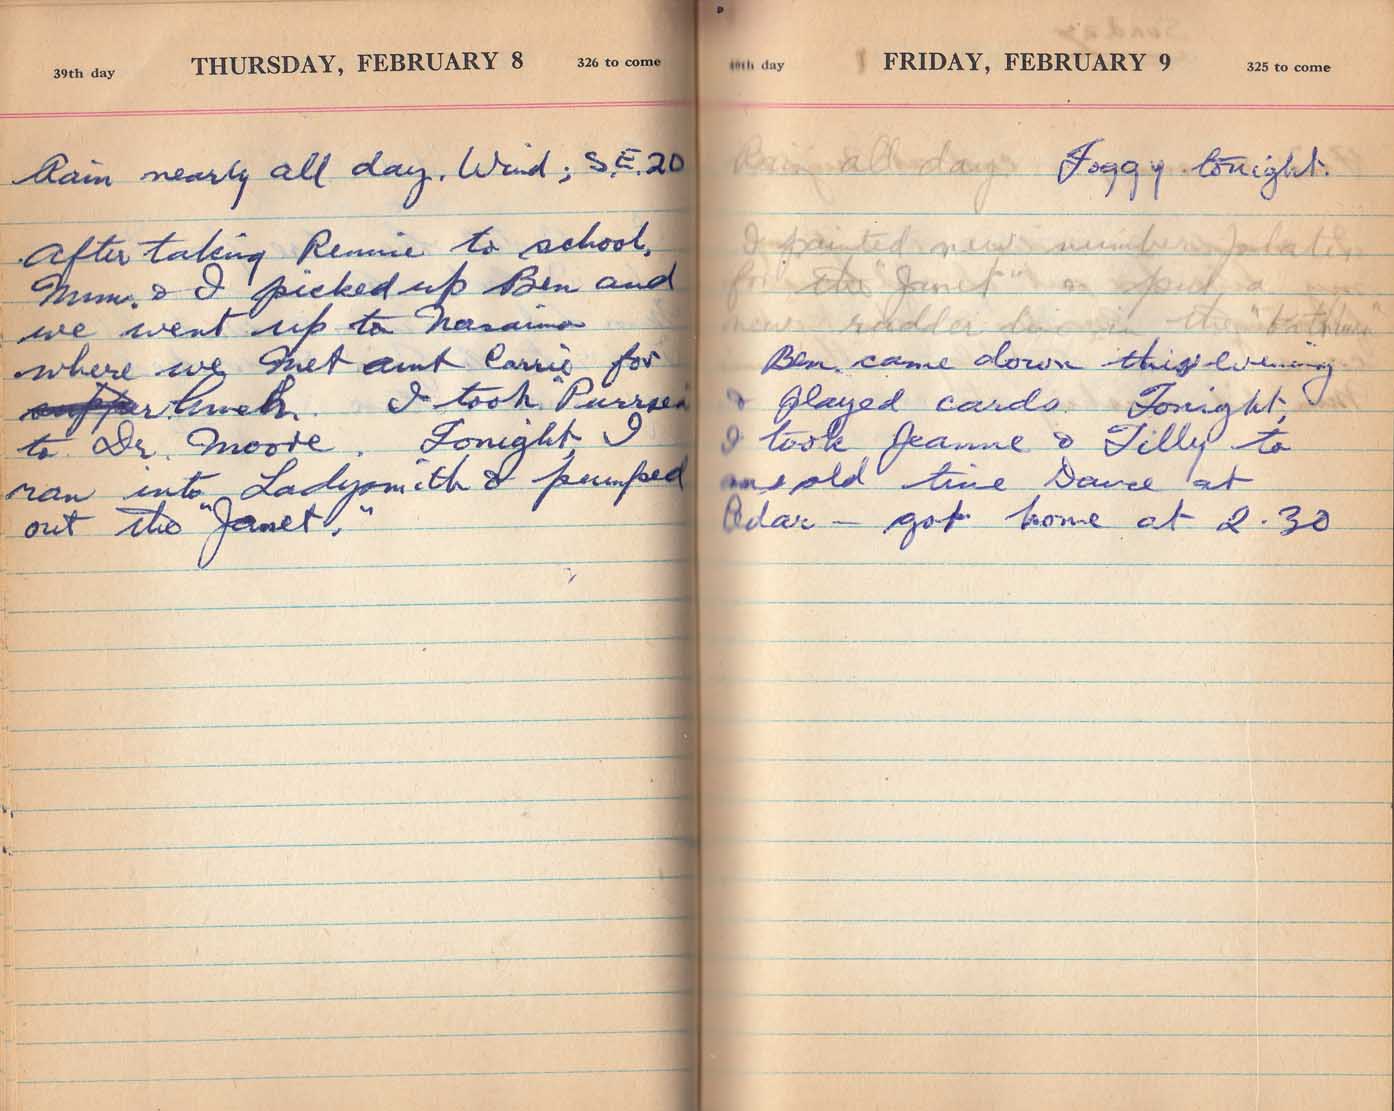 39th day THURSDAY, FEBRUARY 8 326 to come
Rain nearly all day. Wind; S.E. 20
After taking Rennie to school,
Mum. & I picked up Ben and
we went up to Nanaimo
where we met aunt Carrie for
supper lunch. I took "Purrsen
to Dr. Moore. Tonight, I
ran into Ladysmith & pumped
out the "Janet."
40th day FRIDAY, FEBRUARY 9 325 to come
Rain all day. Foggy tonight.
I painted new number plates
for the "Janet" & put a
new rudder in the
Ben came down this evening
& played cards. Tonight,
I took Jeanne & Tilly to
an old time Dance at
Cedar — got home at 2.30